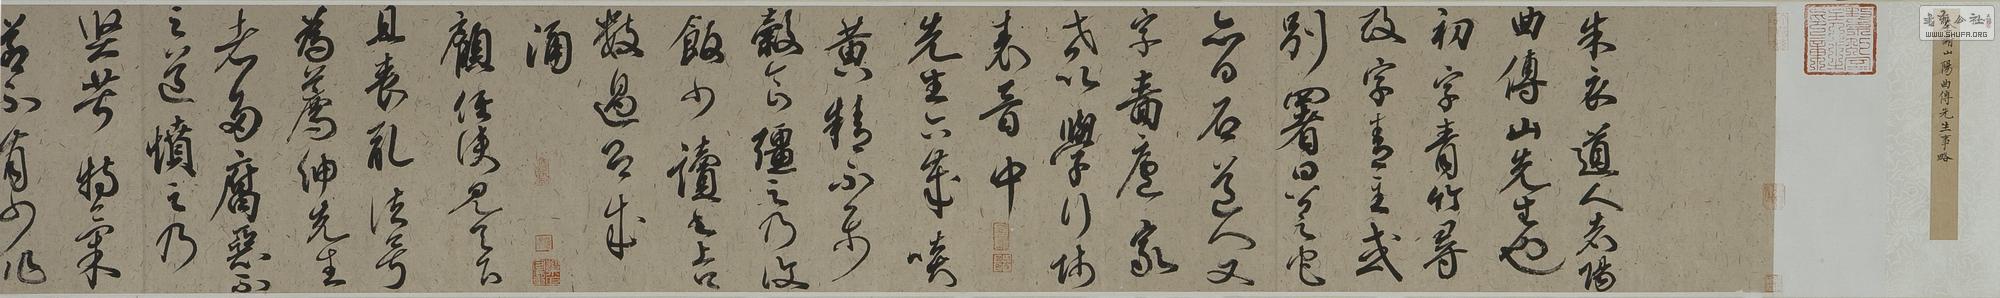 陽曲傅先生事略
書法公社
WWW.SHUFA.ORG
朱衣道人者陽
曲傅山先生也
初字青竹尋
改字青主或
別署曰公之它
亦曰石道人又
字嗇廬家
世以學行師
表晉中
先生六歲啖
黃精不樂
穀食彊之乃復
飯少讀書上口
數過即成
誦
顧任俠見天下
且喪亂諸號
為薦紳先生
者多腐惡不
足道憤之乃
堅苦持氣
節不肯少作